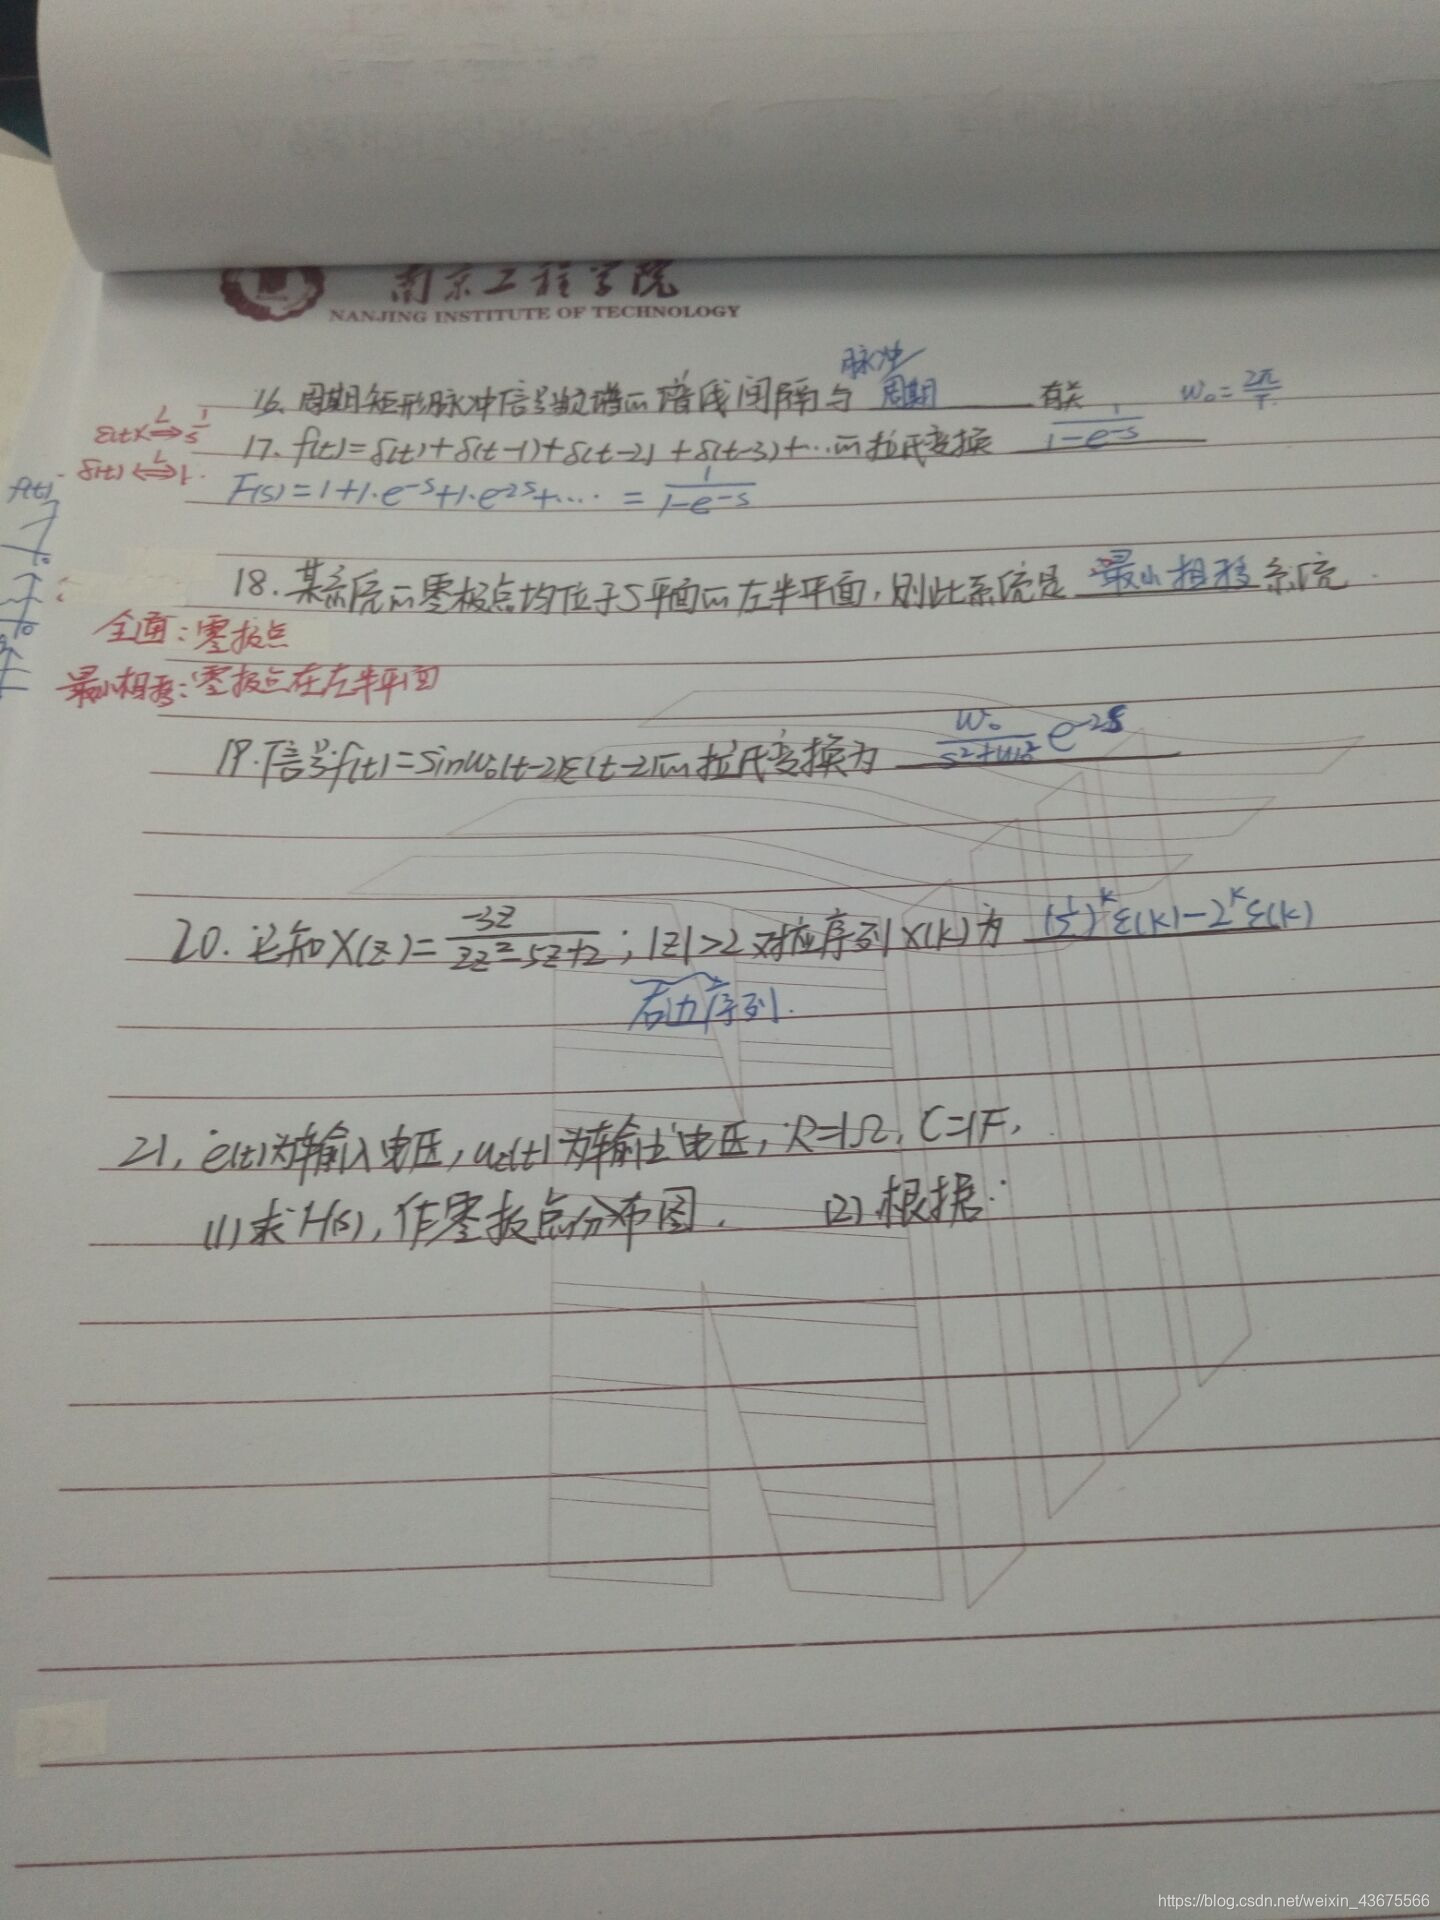 南京工程学院
NANJING INSTITUTE OF TECHNOLOGY
脉冲
16. 周期矩形脉冲信号频谱的谱线间隔与 周期 有关 W₀=2π/T
ε(t) ⟺L 1/s
17. f(t)=δ(t)+δ(t-1)+δ(t-2)+δ(t-3)+…的拉氏变换 1/(1-e^-s)
δ(t) ⟺L 1.
f(t)
F(s)=1+1·e^-s+1·e^2s+…. = 1/(1-e^-s)
18. 某系统的零极点均位于S平面的左半平面,则此系统是 最小相移系统.
全面:零极点
最小相移:零极点在左半平面
19. 信号f(t)=sinW₀(t-2)ε(t-2)的拉氏变换为 W₀/(s²+W₀²) e^-2s
20. 已知X(z)=-3z/(2z²-5z+2); |z|>2 对应序列X(k)为 (1/2)^k ε(k)-2^k ε(k)
右边序列.
21. e(t)为输入电压,u₂(t)为输出电压,R=1Ω, C=1F,
(1)求H(s),作零极点分布图. (2)根据
https://blog.csdn.net/weixin_43675566